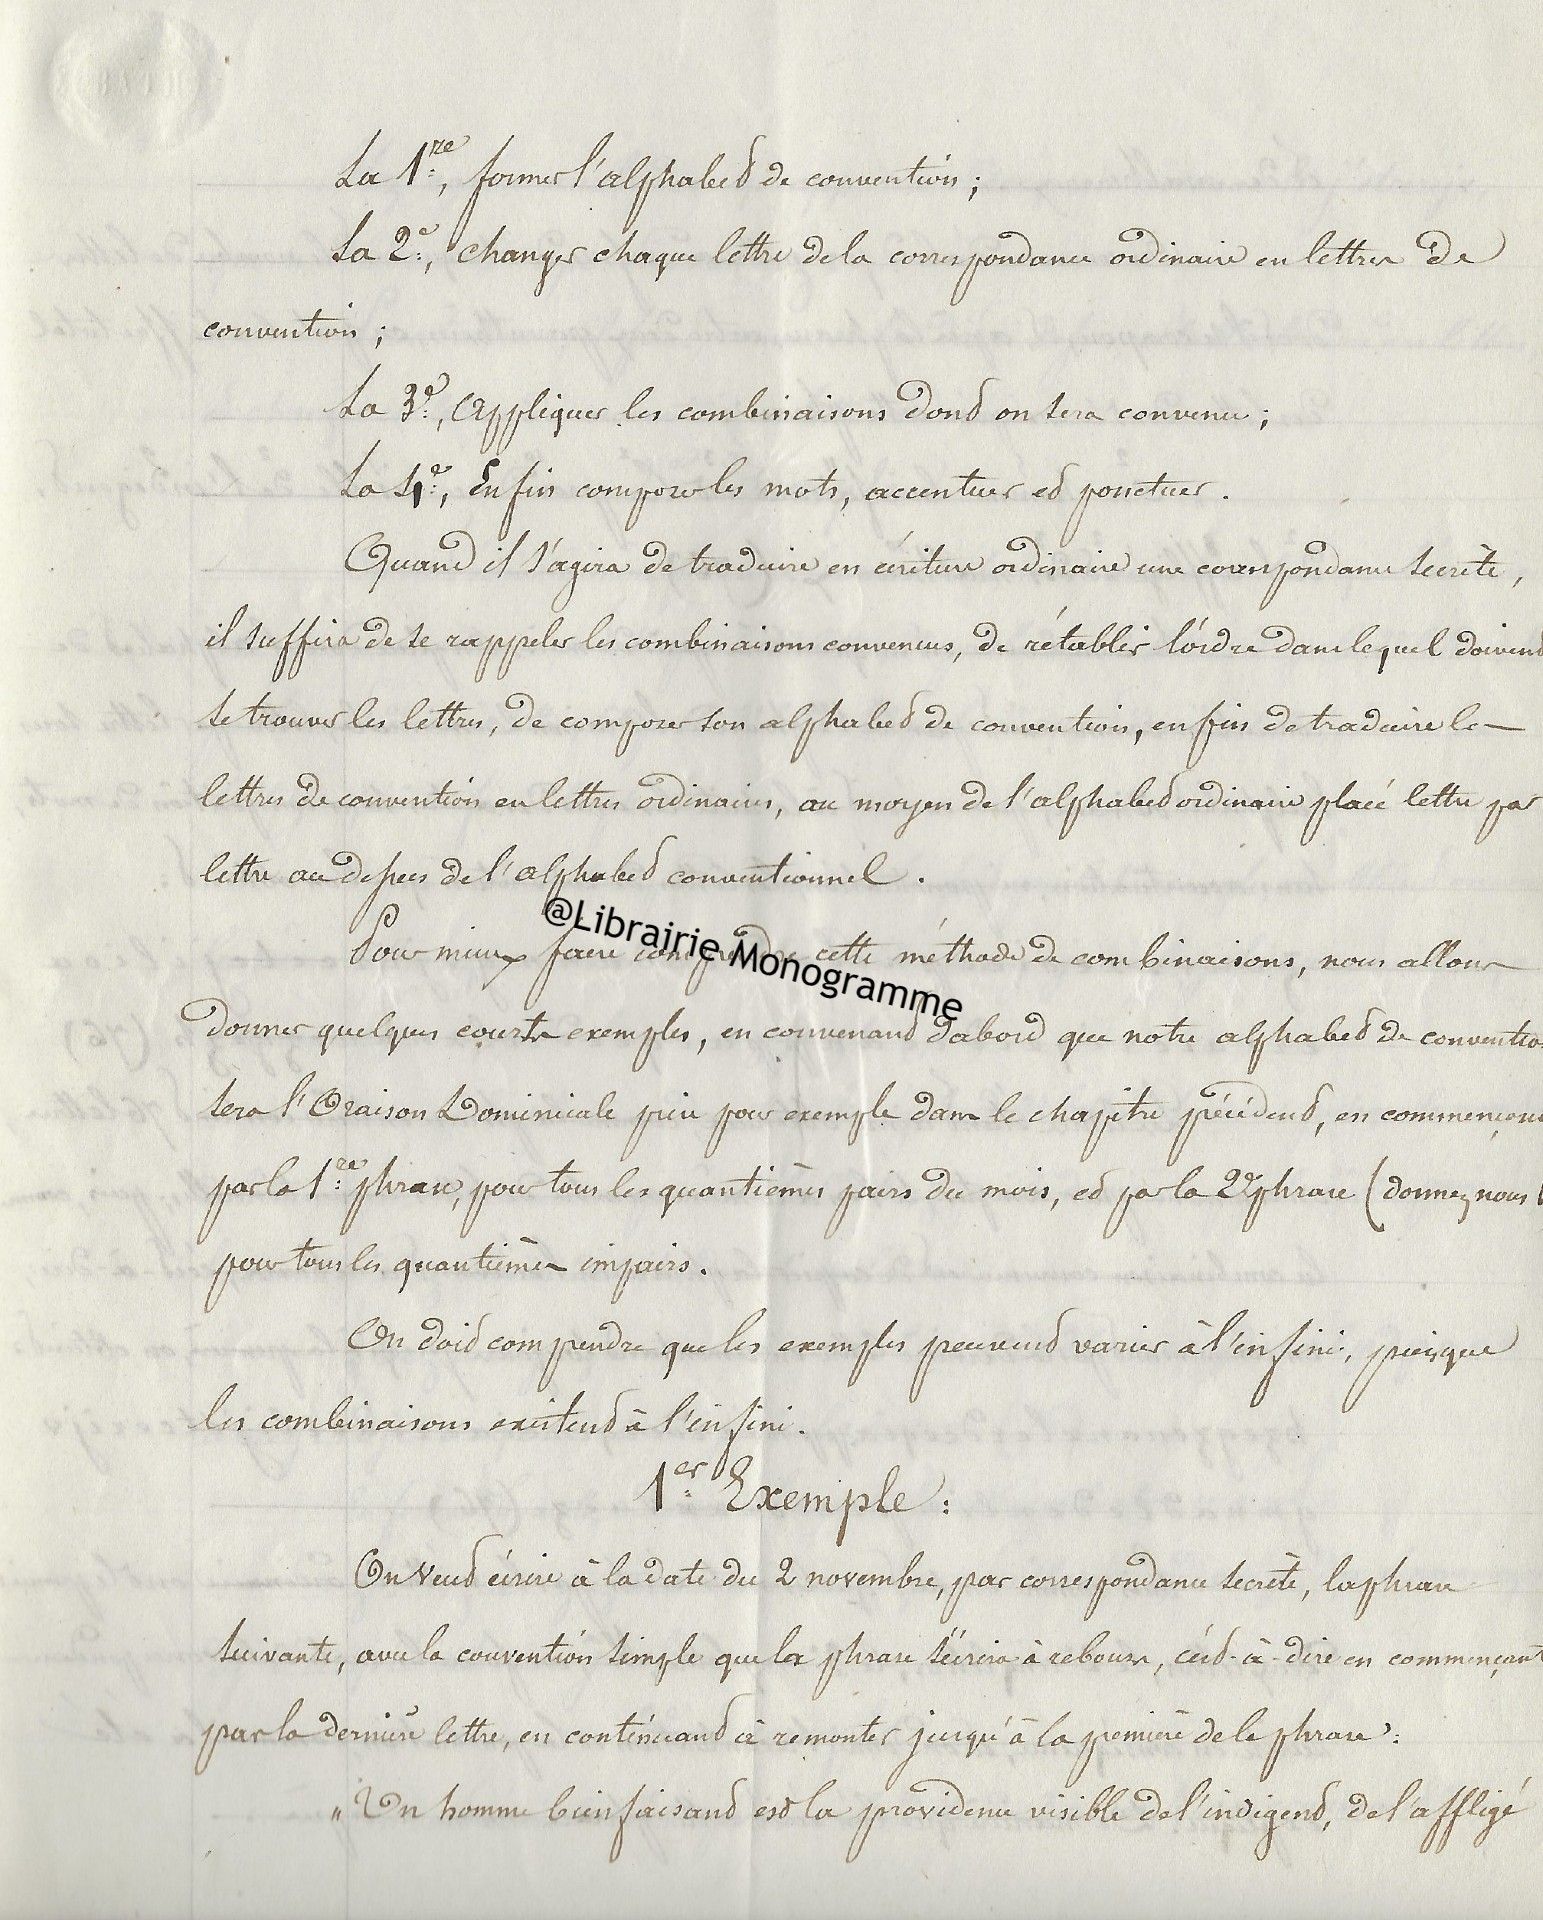 La 1re, former l'alphabet de convention;
La 2e, changer chaque lettre de la correspondance ordinaire en lettres de
convention;
La 3e, appliquer les combinaisons dont on sera convenu;
La 4e, Enfin composer les mots, accentuer et ponctuer.
Quand il s'agira de traduire en écriture ordinaire une correspondance secrète,
il suffira de se rappeler les combinaisons convenues, de rétablir l'ordre dans lequel doivent
se trouver les lettres, de composer son alphabet de convention, enfin de traduire les
lettres de convention en lettres ordinaires, au moyen de l'alphabet ordinaire placé lettre par
lettre au dessus de l'alphabet conventionnel.
Pour mieux faire comprendre cette méthode de combinaisons, nous allons
@Librairie Monogramme
donner quelques courts exemples, en convenant d'abord que notre alphabet de conventio
sera l'Oraison Dominicale pris pour exemple dans le chapitre précédent, en commençant
par la 1re phrase, pour tous les quantièmes pairs du mois, et par la 2e phrase (donnez nous
pour tous les quantièmes impairs.
On doit comprendre que les exemples peuvent varier à l'infini, puisque
les combinaisons existent à l'infini.
1er Exemple:
On veut écrire à la date du 2 novembre, par correspondance secrète, la phrase
suivante, avec la convention simple que la phrase s'écrira à rebours, c'est-à-dire en commençant
par la dernière lettre, en continuant à remonter jusqu'à la première de la phrase:
"Un homme bienfaisant est la providence visible de l'indigent, de l'affligé